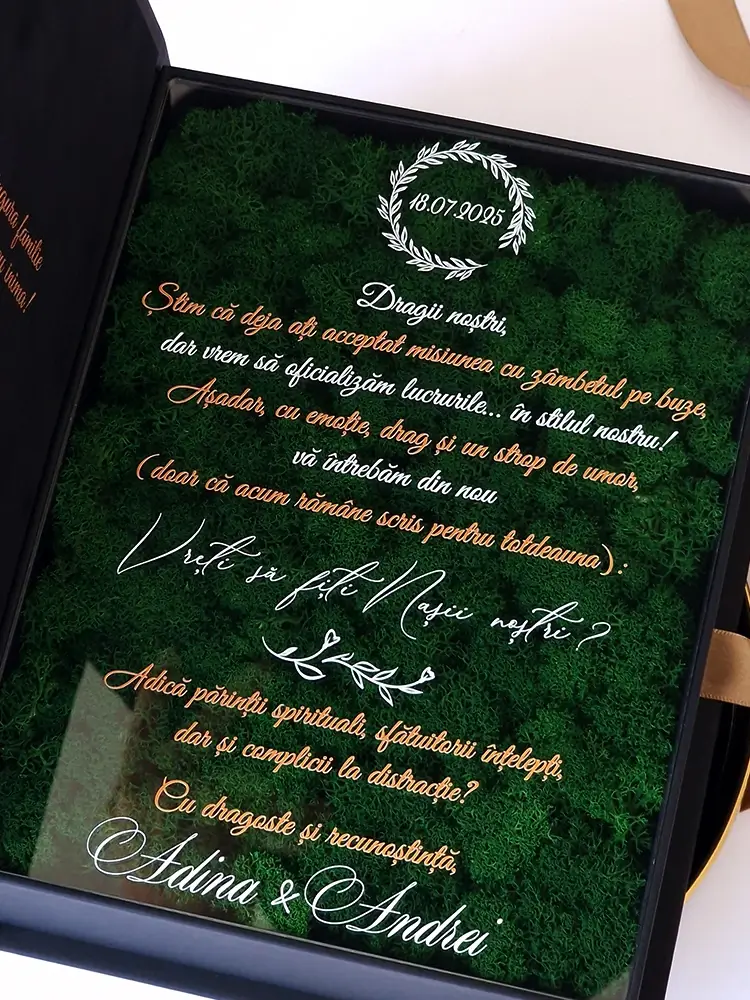 familie
inima!
18.07.2025
Dragii noștri,
Știm că deja ați acceptat misiunea cu zâmbetul pe buze,
dar vrem să oficializăm lucrurile... în stilul nostru!
Așadar, cu emoție, drag și un strop de umor,
vă întrebăm din nou
(doar că acum rămâne scris pentru totdeauna):
Vreți să fiți Nașii noștri?
Adică părinții spirituali, sfătuitorii înțelepți,
dar și complicii la distracție?
Cu dragoste și recunoștință,
Adina & Andrei